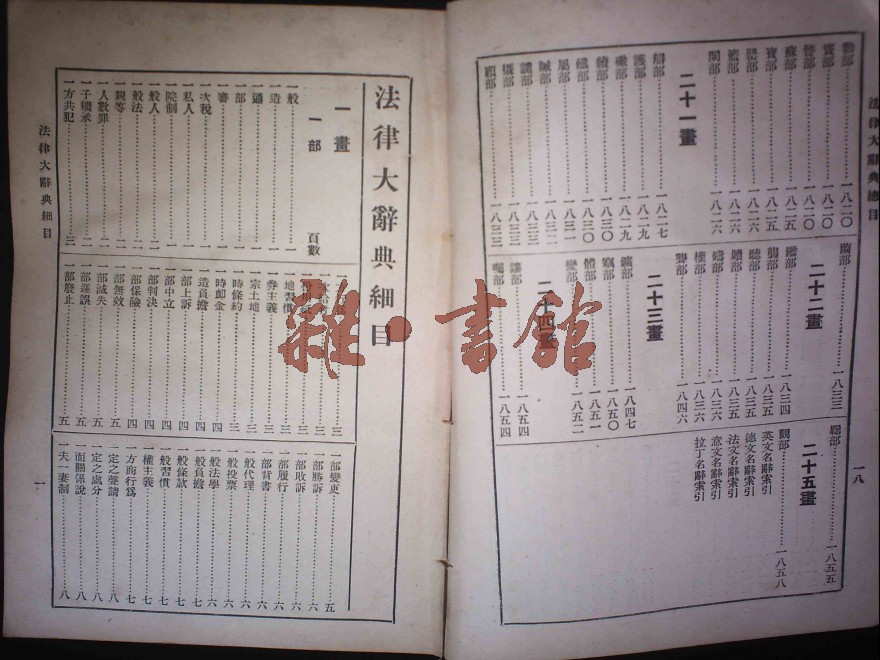 法律大辭典總目
一八
勷部……一八二〇
寶部……一八二〇
譽部……一八二〇
蘇部……一八二五
寶部……一八二五
籃部……一八二六
闡部……一八二六
二十一畫
辯部……一八二七
護部……一八二九
續部……一八三〇
鐵部……一八三〇
屬部……一八三一
顧部……一八三三
二十二畫
襲部……一八三四
聽部……一八三五
贖部……一八三五
權部……一八三六
二十三畫
鑛部……一八四七
竊部……一八五〇
體部……一八五一
變部……一八五二
二十四畫
讓部……一八五四
囑部……一八五四
二十五畫
觀部……一八五八
英文名辭索引
德文名辭索引
法文名辭索引
意文名辭索引
拉丁名辭索引
法律大辭典細目
一畫
一部 頁數
一般……一
一造……一
一通……一
一部……一
一審……一
一次稅……一
一私人……一
一院制……一
一般人……一
一般法……二
一親等……二
一人數罪……二
一子繼承……二
一方共犯……三
一地習慣……三
一券主義……三
一宗土地……三
一時條約……三
一時卹金……四
一造負擔……四
一部上訴……四
一部中立……四
一部判決……四
一部保險……四
一部無效……五
一部滅失……五
一部遲誤……五
一部廢止……五
一部變更……五
一部勝訴……六
一部敗訴……六
一部履行……六
一部背書……六
一般代理……六
一般投票……六
一般法學……六
一般負擔……七
一般條款……七
一般習慣……七
一權主義……七
一方商行爲……七
一定之聲請……八
一定之處分……八
一面關係說……八
一夫一妻制……八
法律大辭典細目
一
雜·書館